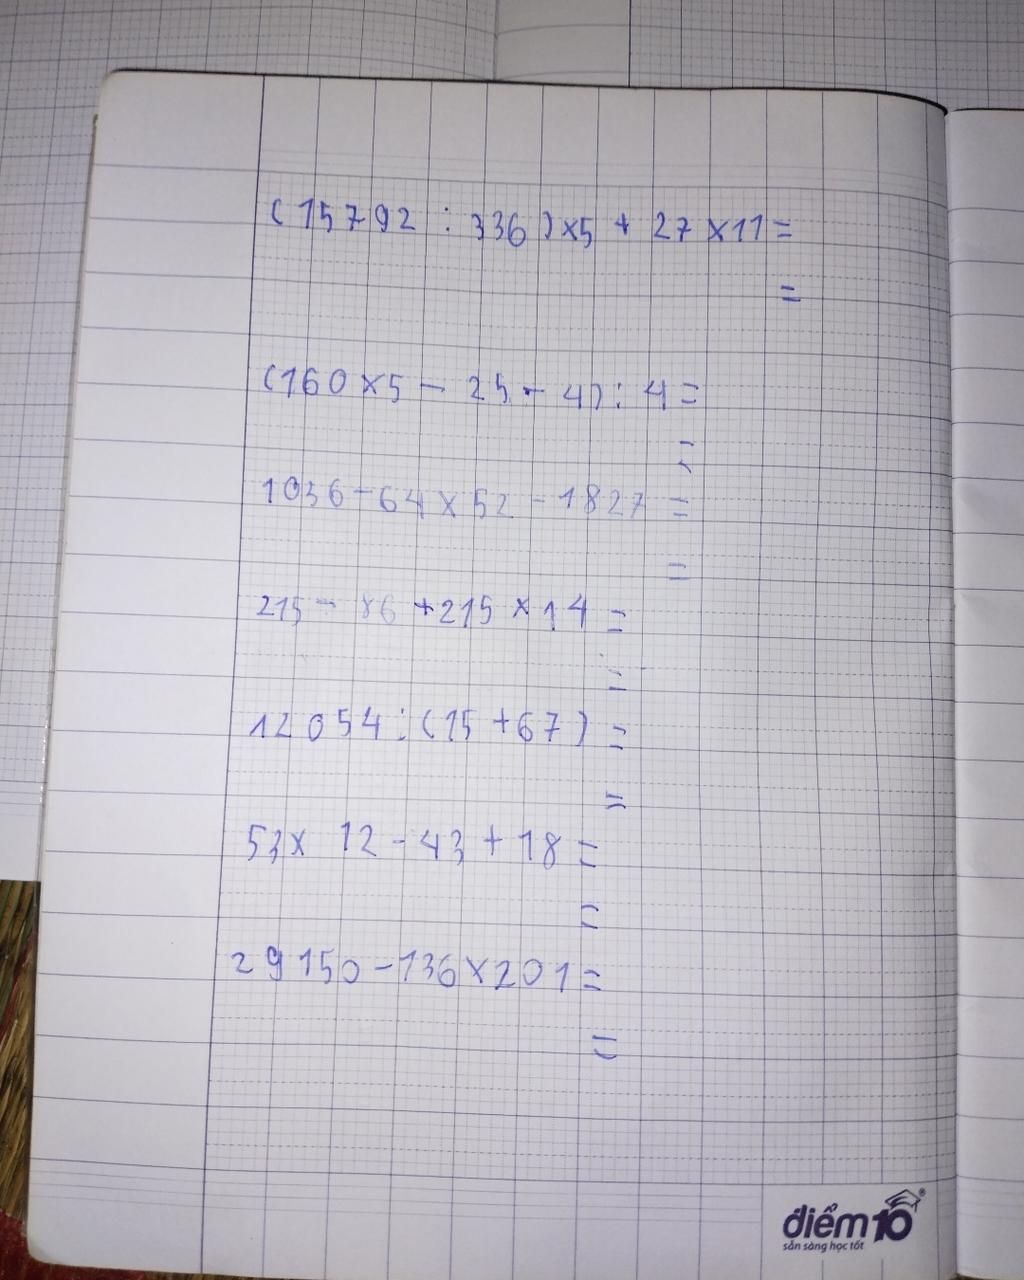 (15792 : 336) x5 + 27 x 11 =
=
(160 x 5 - 25 - 4) : 4 =
=
1036 - 64 x 52 - 1827 =
=
215 - 86 + 215 x 14 =
=
12054 : (15 + 67) =
=
53 x 12 - 43 + 18 =
=
29150 - 136 x 201 =
=
điểm10
sẵn sàng học tốt